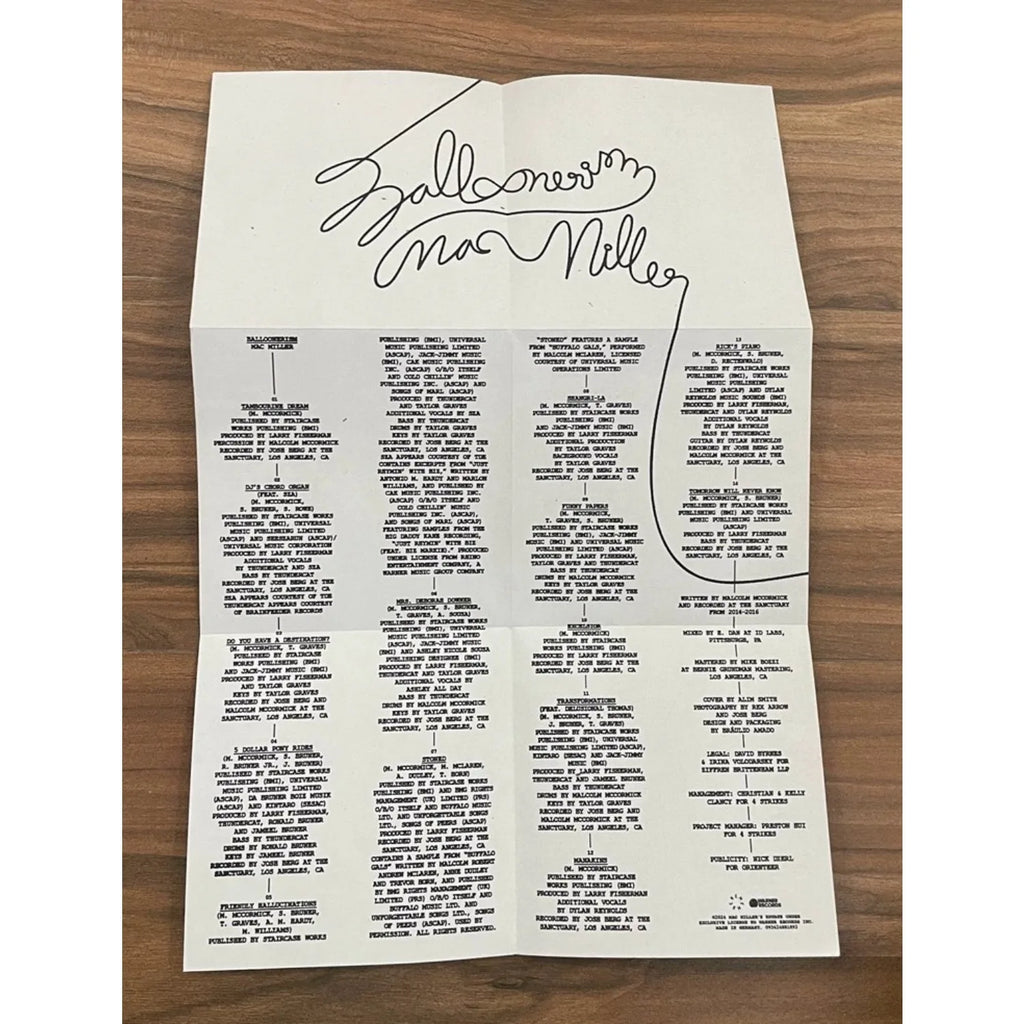 Balloonerism
Mac Miller
BALLOONERISM
MAC MILLER
01
TAMBOURINE DREAM
(M. MCCORMICK)
PUBLISHED BY STAIRCASE
WORKS PUBLISHING (BMI)
PRODUCED BY LARRY FISHERMAN
PERCUSSION BY MALCOLM MCCORMICK
RECORDED BY JOSH BERG AT THE
SANCTUARY, LOS ANGELES, CA
02
DJ'S CHORD ORGAN
(FEAT. SZA)
(M. MCCORMICK,
S. BRUNER, S. ROWE)
PUBLISHED BY STAIRCASE WORKS
PUBLISHING (BMI), UNIVERSAL
MUSIC PUBLISHING LIMITED
(ASCAP) AND
UNIVERSAL MUSIC CORPORATION
PRODUCED BY LARRY FISHERMAN
ADDITIONAL VOCALS
BY THUNDERCAT AND SZA
BASS BY THUNDERCAT
RECORDED BY JOSH BERG AT THE
SANCTUARY, LOS ANGELES, CA
SZA APPEARS COURTESY OF TDE
THUNDERCAT APPEARS COURTESY
OF BRAINFEEDER RECORDS
03
DO YOU HAVE A DESTINATION?
(M. MCCORMICK, T. GRAVES)
PUBLISHED BY STAIRCASE
WORKS PUBLISHING (BMI)
AND JACK-JIMMY MUSIC (BMI)
PRODUCED BY LARRY FISHERMAN
AND TAYLOR GRAVES
KEYS BY TAYLOR GRAVES
RECORDED BY JOSH BERG AND
MALCOLM MCCORMICK AT THE
SANCTUARY, LOS ANGELES, CA
04
5 DOLLAR PONY RIDES
(M. MCCORMICK, S. BRUNER,
R. BRUNER JR., J. BRUNER)
PUBLISHED BY STAIRCASE WORKS
PUBLISHING (BMI), UNIVERSAL
MUSIC PUBLISHING LIMITED
(ASCAP), DA BRUNER BOIZ MUSIK
(ASCAP) AND KINTARO (SESAC)
PRODUCED BY LARRY FISHERMAN,
THUNDERCAT, RONALD BRUNER
AND JAMEEL BRUNER
BASS BY THUNDERCAT
DRUMS BY RONALD BRUNER
KEYS BY JAMEEL BRUNER
RECORDED BY JOSH BERG AT THE
SANCTUARY, LOS ANGELES, CA
05
FRIENDLY HALLUCINATIONS
(M. MCCORMICK, S. BRUNER,
T. GRAVES, A. M. HARDY,
M. WILLIAMS)
PUBLISHED BY STAIRCASE WORKS
PUBLISHING (BMI), UNIVERSAL
MUSIC PUBLISHING LIMITED
(ASCAP), JACK-JIMMY MUSIC
(BMI), CAK MUSIC PUBLISHING
INC. (ASCAP) O/B/O ITSELF
AND COLD CHILLIN' MUSIC
PUBLISHING INC. (ASCAP) AND
SONGS OF MARL (ASCAP)
PRODUCED BY THUNDERCAT
AND TAYLOR GRAVES
ADDITIONAL VOCALS BY SZA
BASS BY THUNDERCAT
DRUMS BY TAYLOR GRAVES
KEYS BY TAYLOR GRAVES
RECORDED BY JOSH BERG AT THE
SANCTUARY, LOS ANGELES, CA
SZA APPEARS COURTESY OF TDE
CONTAINS EXCERPTS FROM "JUST
RHYMIN' WITH BIZ," WRITTEN BY
ANTONIO M. HARDY AND MARLON
WILLIAMS, AND PUBLISHED BY
CAK MUSIC PUBLISHING INC.
(ASCAP) O/B/O ITSELF AND
COLD CHILLIN' MUSIC
PUBLISHING INC. (ASCAP),
AND SONGS OF MARL (ASCAP)
FEATURING SAMPLES FROM THE
BIG DADDY KANE RECORDING,
"JUST RHYMIN' WITH BIZ
(FEAT. BIZ MARKIE)." PRODUCED
UNDER LICENSE FROM RHINO
ENTERTAINMENT COMPANY, A
WARNER MUSIC GROUP COMPANY
06
MRS. DEBORAH DOWNER
(M. MCCORMICK, S. BRUNER,
T. GRAVES, A. SOUSA)
PUBLISHED BY STAIRCASE WORKS
PUBLISHING (BMI), UNIVERSAL
MUSIC PUBLISHING LIMITED
(ASCAP), JACK-JIMMY MUSIC
(BMI) AND ASHLEY NICOLE SOUSA
PUBLISHING DESIGNEE (BMI)
PRODUCED BY LARRY FISHERMAN,
THUNDERCAT AND TAYLOR GRAVES
ADDITIONAL VOCALS BY
ASHLEY ALL DAY
BASS BY THUNDERCAT
DRUMS BY MALCOLM MCCORMICK
KEYS BY TAYLOR GRAVES
RECORDED BY JOSH BERG AT THE
SANCTUARY, LOS ANGELES, CA
07
STONED
(M. MCCORMICK, M. MCLAREN,
A. DUDLEY, T. HORN)
PUBLISHED BY STAIRCASE WORKS
PUBLISHING (BMI) AND BMG RIGHTS
MANAGEMENT (UK) LIMITED (PRS)
O/B/O ITSELF AND BUFFALO MUSIC
LTD. AND UNFORGETTABLE SONGS
LTD., SONGS OF PEERS (ASCAP)
PRODUCED BY LARRY FISHERMAN
RECORDED BY JOSH BERG AT THE
SANCTUARY, LOS ANGELES, CA
CONTAINS A SAMPLE FROM "BUFFALO
GALS" WRITTEN BY MALCOLM ROBERT
ANDREW MCLAREN, ANNE DUDLEY
AND TREVOR HORN, AND PUBLISHED
BY BMG RIGHTS MANAGEMENT (UK)
LIMITED (PRS) O/B/O ITSELF AND
BUFFALO MUSIC LTD. AND
UNFORGETTABLE SONGS LTD., SONGS
OF PEERS (ASCAP). USED BY
PERMISSION. ALL RIGHTS RESERVED.
"STONED" FEATURES A SAMPLE
FROM "BUFFALO GALS," PERFORMED
BY MALCOLM MCLAREN, LICENSED
COURTESY OF UNIVERSAL MUSIC
OPERATIONS LIMITED
08
SHANGRI-LA
(M. MCCORMICK, T. GRAVES)
PUBLISHED BY STAIRCASE WORKS
PUBLISHING (BMI)
AND JACK-JIMMY MUSIC (BMI)
PRODUCED BY LARRY FISHERMAN
ADDITIONAL PRODUCTION
BY TAYLOR GRAVES
BACKGROUND VOCALS
BY TAYLOR GRAVES
RECORDED BY JOSH BERG AT THE
SANCTUARY, LOS ANGELES, CA
09
FUNNY PAPERS
(M. MCCORMICK,
T. GRAVES, S. BRUNER)
PUBLISHED BY STAIRCASE WORKS
PUBLISHING (BMI), JACK-JIMMY
MUSIC (BMI) AND UNIVERSAL MUSIC
PUBLISHING LIMITED (ASCAP)
PRODUCED BY LARRY FISHERMAN,
TAYLOR GRAVES AND THUNDERCAT
BASS BY THUNDERCAT
DRUMS BY MALCOLM MCCORMICK
KEYS BY TAYLOR GRAVES
RECORDED BY JOSH BERG AT THE
SANCTUARY, LOS ANGELES, CA
10
EXCELSIOR
(M. MCCORMICK)
PUBLISHED BY STAIRCASE
WORKS PUBLISHING (BMI)
PRODUCED BY LARRY FISHERMAN
RECORDED BY JOSH BERG AT THE
SANCTUARY, LOS ANGELES, CA
11
TRANSFORMATIONS
(FEAT. DELUSIONAL THOMAS)
(M. MCCORMICK, S. BRUNER,
J. BRUNER, T. GRAVES)
PUBLISHED BY STAIRCASE WORKS
PUBLISHING (BMI), UNIVERSAL
MUSIC PUBLISHING LIMITED (ASCAP),
KINTARO (SESAC) AND JACK-JIMMY
MUSIC (BMI)
PRODUCED BY LARRY FISHERMAN,
THUNDERCAT AND JAMEEL BRUNER
BASS BY THUNDERCAT
DRUMS BY MALCOLM MCCORMICK
KEYS BY TAYLOR GRAVES
RECORDED BY JOSH BERG AND
MALCOLM MCCORMICK AT THE
SANCTUARY, LOS ANGELES, CA
12
MANAKINS
(M. MCCORMICK)
PUBLISHED BY STAIRCASE
WORKS PUBLISHING (BMI)
PRODUCED BY LARRY FISHERMAN
ADDITIONAL VOCALS
BY DYLAN REYNOLDS
RECORDED BY JOSH BERG AT THE
SANCTUARY, LOS ANGELES, CA
13
RICK'S PIANO
(M. MCCORMICK, S. BRUNER,
D. RECTENWALD)
PUBLISHED BY STAIRCASE WORKS
PUBLISHING (BMI), UNIVERSAL
MUSIC PUBLISHING
LIMITED (ASCAP) AND DYLAN
REYNOLDS MUSIC SOUNDS (BMI)
PRODUCED BY LARRY FISHERMAN,
THUNDERCAT AND DYLAN REYNOLDS
ADDITIONAL VOCALS
BY DYLAN REYNOLDS
BASS BY THUNDERCAT
GUITAR BY DYLAN REYNOLDS
RECORDED BY JOSH BERG AND
MALCOLM MCCORMICK AT THE
SANCTUARY, LOS ANGELES, CA
14
TOMORROW WILL NEVER KNOW
(M. MCCORMICK, S. BRUNER)
PUBLISHED BY STAIRCASE WORKS
PUBLISHING (BMI) AND UNIVERSAL
MUSIC PUBLISHING LIMITED
(ASCAP)
PRODUCED BY LARRY FISHERMAN
BASS BY THUNDERCAT
RECORDED BY JOSH BERG AT THE
SANCTUARY, LOS ANGELES, CA
WRITTEN BY MALCOLM MCCORMICK
AND RECORDED AT THE SANCTUARY
FROM 2014-2016
MIXED BY E. DAN AT ID LABS,
PITTSBURGH, PA
MASTERED BY MIKE BOZZI
AT BERNIE GRUNDMAN MASTERING,
LOS ANGELES, CA
COVER BY ALIM SMITH
PHOTOGRAPHY BY REX ARROW
AND JOSH BERG
DESIGN AND PACKAGING
BY BRÁULIO AMADO
LEGAL: DAVID BYRNES
& IRINA VOLODARSKY FOR
ZIFFREN BRITTENHAM LLP
MANAGEMENT: CHRISTIAN & KELLY
CLANCY FOR 4 STRIKES
PROJECT MANAGER: PRESTON HUI
FOR 4 STRIKES
PUBLICITY: NICK DIERL
FOR ORIENTEER
WARNER
RECORDS
©2024 MAC MILLER'S ESTATE UNDER
EXCLUSIVE LICENSE TO WARNER RECORDS INC.
MADE IN GERMANY.